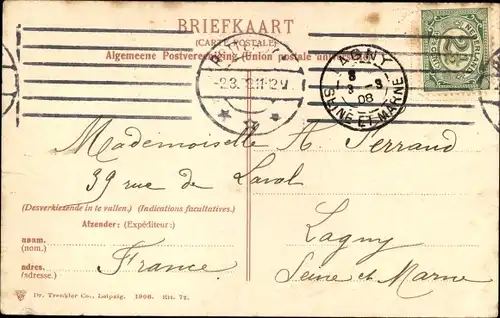 BRIEFKAART
(CARTE POSTALE)
Algemeene Postvereeniging (Union postale
-2.3. 12.11-12V
LAGNY
8
3 - 3
08
SEINE-ET-MARNE
NEDERLAND
2½
Mademoiselle A. Ferrand
39 rue de Laval
(Desverkiezende in te vullen.) (Indications facultatives.)
Afzender: (Expéditeur:)
naam.
(nom.)
adres.
(adresse.)
France
Lagny
Seine et Marne
Dr. Trenkler Co., Leipzig. 1906. Htt. 72.